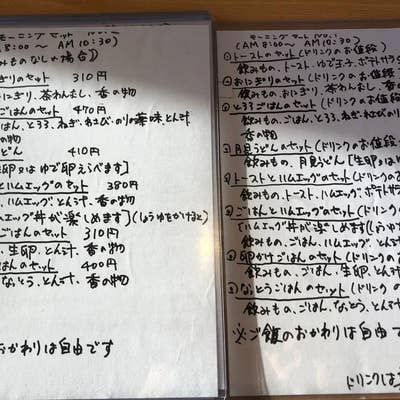 モーニングセット No.2
AM 8:00〜 AM10:30)
飲みものなしの場合)
ぎりのセット 310円
おにぎり、茶わんむし、香の物
ごはんのセット 470円
はん、とろろ、ねぎ、わさび、のりの薬味、とん汁
の物
どん 410円
生卵又はゆで卵えらべます]
とハムエッグのセット 380円
ムエッグ、とん汁、香の物
ムエッグ丼が楽しめます](しょうゆをかけると)
ごはんのセット 310円
、生卵、とん汁、香の物
はんのセット 400円
なっとう、とん汁、香の物
おかわりは自由です
モーニングセット No.1
(AM 8:00〜 AM10:30)
トーストのセット(ドリンクのお値段
飲みもの、トースト、ゆで玉子、ポテトサラダ
おにぎりのセット(ドリンクのお値段
飲みもの、おにぎり、茶わんむし、香の
とろろごはんのセット(ドリンクのお値
飲みもの、ごはん、とろろ、ねぎ、わさび、の
香の物
月見うどんのセット(ドリンクのお値
飲みもの、月見うどん [生卵又はゆ
トーストとハムエッグのセット(ドリンクの
飲みもの、トースト、ハムエッグ、ポテトサラ
ごはんとハムエッグのセット(ドリンクの
[ハムエッグ丼が楽しめます(しょうゆ
飲みもの、ごはん、ハムエッグ、とん
卵かけごはんのセット(ドリンクのお
飲みもの、ごはん、生卵、とん汁
なっとうごはんのセット(ドリンクの
飲みもの、ごはん、なっとう、とん汁
※ご飯のおかわりは自由で
ドリンクは